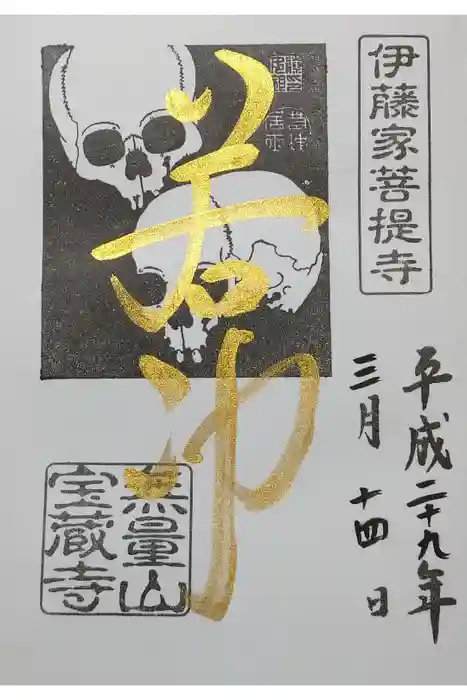 伊藤家菩提寺
平成二十九年
三月十四日
若冲
無量山
宝蔵寺